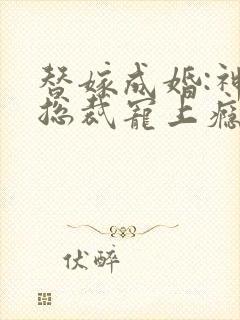 替嫁成婚:神
总裁宠上瘾
伏醉